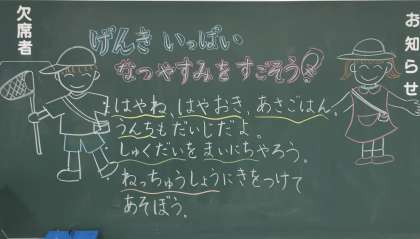 お知らせ
げんき いっぱい
なつやすみを すごそう!
・はやね、はやおき、あさごはん。
うんちもだいじだよ。
・しゅくだいを まいにちやろう。
・ねっちゅうしょうにきをつけて
あそぼう。
欠席者